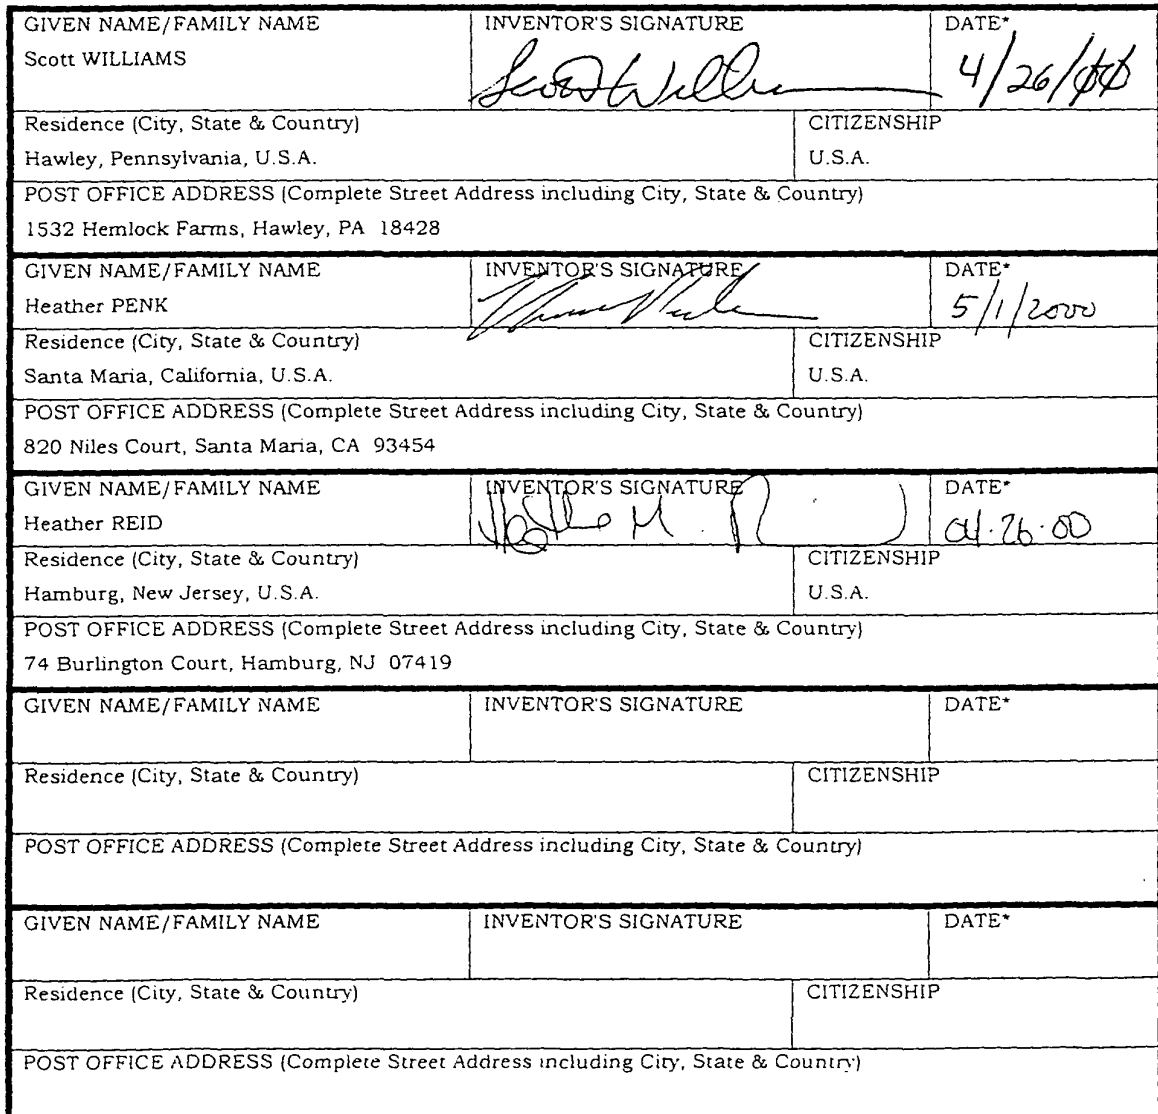 GIVEN NAME/FAMILY NAME INVENTOR'S SIGNATURE DATE*
Scott WILLIAMS Scott Williams 4/26/00
Residence (City, State & Country) CITIZENSHIP
Hawley, Pennsylvania, U.S.A. U.S.A.
POST OFFICE ADDRESS (Complete Street Address including City, State & Country)
1532 Hemlock Farms, Hawley, PA 18428
GIVEN NAME/FAMILY NAME INVENTOR'S SIGNATURE DATE*
Heather PENK 5/1/2000
Residence (City, State & Country) CITIZENSHIP
Santa Maria, California, U.S.A. U.S.A.
POST OFFICE ADDRESS (Complete Street Address including City, State & Country)
820 Niles Court, Santa Maria, CA 93454
GIVEN NAME/FAMILY NAME INVENTOR'S SIGNATURE DATE*
Heather REID Heather M. Reid 04·26·00
Residence (City, State & Country) CITIZENSHIP
Hamburg, New Jersey, U.S.A. U.S.A.
POST OFFICE ADDRESS (Complete Street Address including City, State & Country)
74 Burlington Court, Hamburg, NJ 07419
GIVEN NAME/FAMILY NAME INVENTOR'S SIGNATURE DATE*
Residence (City, State & Country) CITIZENSHIP
POST OFFICE ADDRESS (Complete Street Address including City, State & Country)
GIVEN NAME/FAMILY NAME INVENTOR'S SIGNATURE DATE*
Residence (City, State & Country) CITIZENSHIP
POST OFFICE ADDRESS (Complete Street Address including City, State & Country)